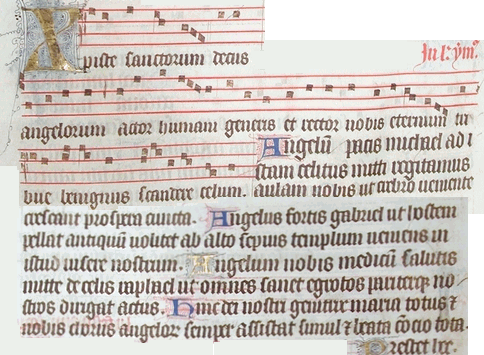 In l. ymo
Xpiste sanctorum decus
angelorum actor humani generis et rector nobis eternum tri
bue benignus scandere celum. Angelum pacis michael ad i
stam celitus mitti rogitamus aulam nobis ut crebro veniente
crescant prospera cuncta. Angelus fortis gabriel ut hostem
pellat antiquum volitet ab alto sepius templum veniens in
istud visere nostrum. Angelum nobis medicum salutis
mitte de celis raphael ut omnes sanet egrotos pariterque no
stros dirigat actus. Hinc dei nostri genitrix maria totus et
nobis chorus angelorum semper assistat simul et beata concio tota.
Prestet hec.